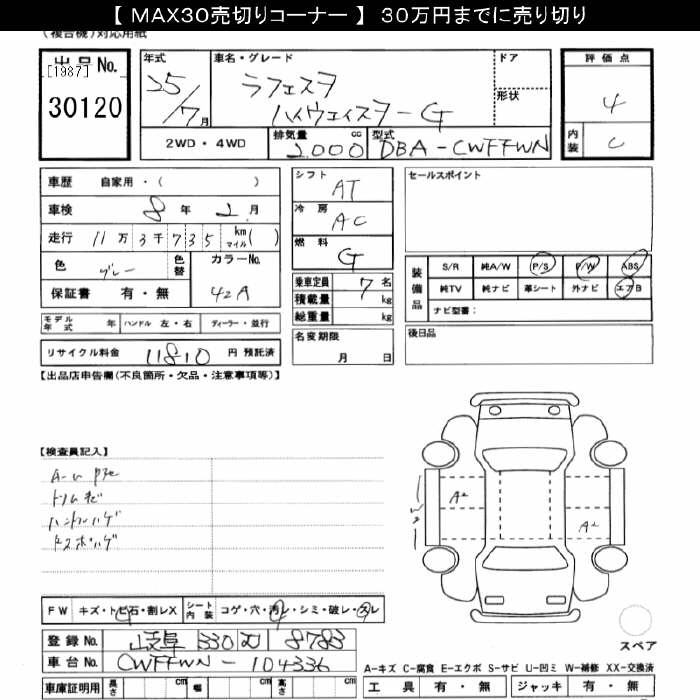 【 MAX30売切りコーナー 】 30万円までに売り切り
(複合機)対応用紙
出品No.
[1987]
30120
年式
25/7月
車名・グレード
ラフェスタ
ハイウェイスターG
ドア
形状
評価点
4
内装
C
2WD・4WD
排気量 2000 cc
型式 DBA-CWFFWN
車歴 自家用・( )
車検 8年2月
走行 11万3千735 km マイル( )
色 グレー
色替
カラーNo. 42A
保証書 有・無
モデル年式 年 ハンドル 左・右 ディーラー・並行
リサイクル料金 11810 円 預託済
シフト AT
冷房 AC
燃料 G
乗車定員 7 名
積載量 kg
総重量 kg
名変期限
月 日
セールスポイント
装備品
S/R 純A/W P/S P/W ABS
純TV 純ナビ 革シート 外ナビ エアB
ナビ型番:
後日品
【出品店申告欄(不良箇所・欠品・注意事項等)】
【検査員記入】
トリムキズ
ハンドルハゲ
A2
A2
FW キズ・トビ石・割レX
シート内装 コゲ・穴・汚レ・シミ・破レ・スレ
登録No. 岐阜 330 8783
車台No. CWFFWN-104336
車庫証明用 長さ cm 幅 cm 高さ cm
スペア
A-キズ C-腐食 E-エクボ S-サビ U-凹ミ W-補修 XX-交換済
工具 有・無 ジャッキ 有・無